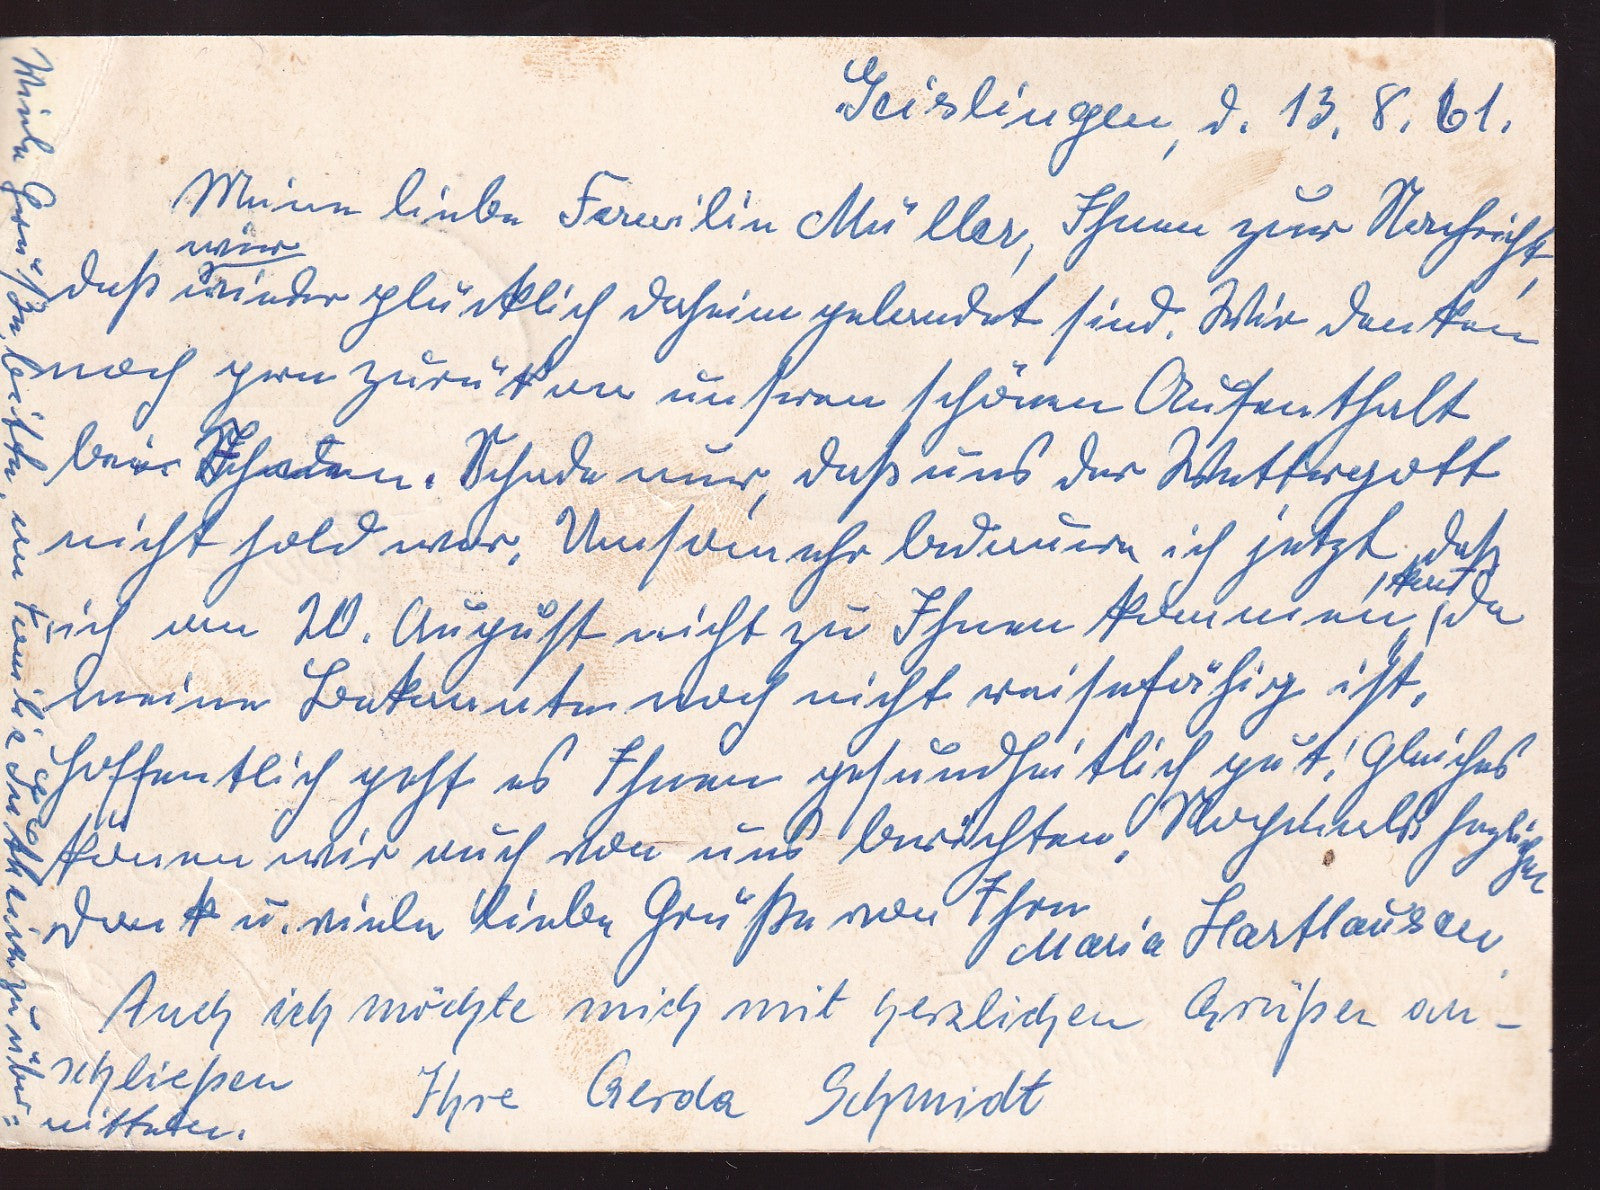 Geislingen, d. 13. 8. 61.
Meine liebe Familie Müller, Ihnen zur Nachricht,
daß wir wieder glücklich daheim gelandet sind. Wir denken
noch gern zurük an unseren schönen Aufenthalt
bei Ihnen. Schade nur, daß uns der Wettergott
nicht hold war. Umsomehr bedauere ich jetzt, daß
ich am 20. August nicht zu Ihnen kommen kann, da
meine Bekannte noch nicht reisefähig ist.
Hoffentlich geht es Ihnen gesundheitlich gut! Gleiches
könen wir auch von uns berichten. Nochmals herzlichen
Dank u. viele liebe Grüße von Ihrer
Maria Harthausen.
Auch ich möchte mich mit herzlichen Grüßen an-
schließen Ihre Gerda Schmidt
Viele Grüße, bitte, an Familie zu über=
mitteln.